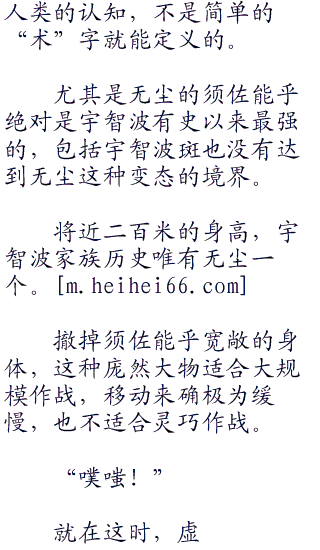 人类的认知，不是简单的
“术”字就能定义的。
尤其是无尘的须佐能乎
绝对是宇智波有史以来最强
的，包括宇智波斑也没有达
到无尘这种变态的境界。
将近二百米的身高，宇
智波家族历史唯有无尘一
个。[m.heihei66.com]
撤掉须佐能乎宽敞的身
体，这种庞然大物适合大规
模作战，移动来确极为缓
慢，也不适合灵巧作战。
“噗嗤！”
就在这时，虚